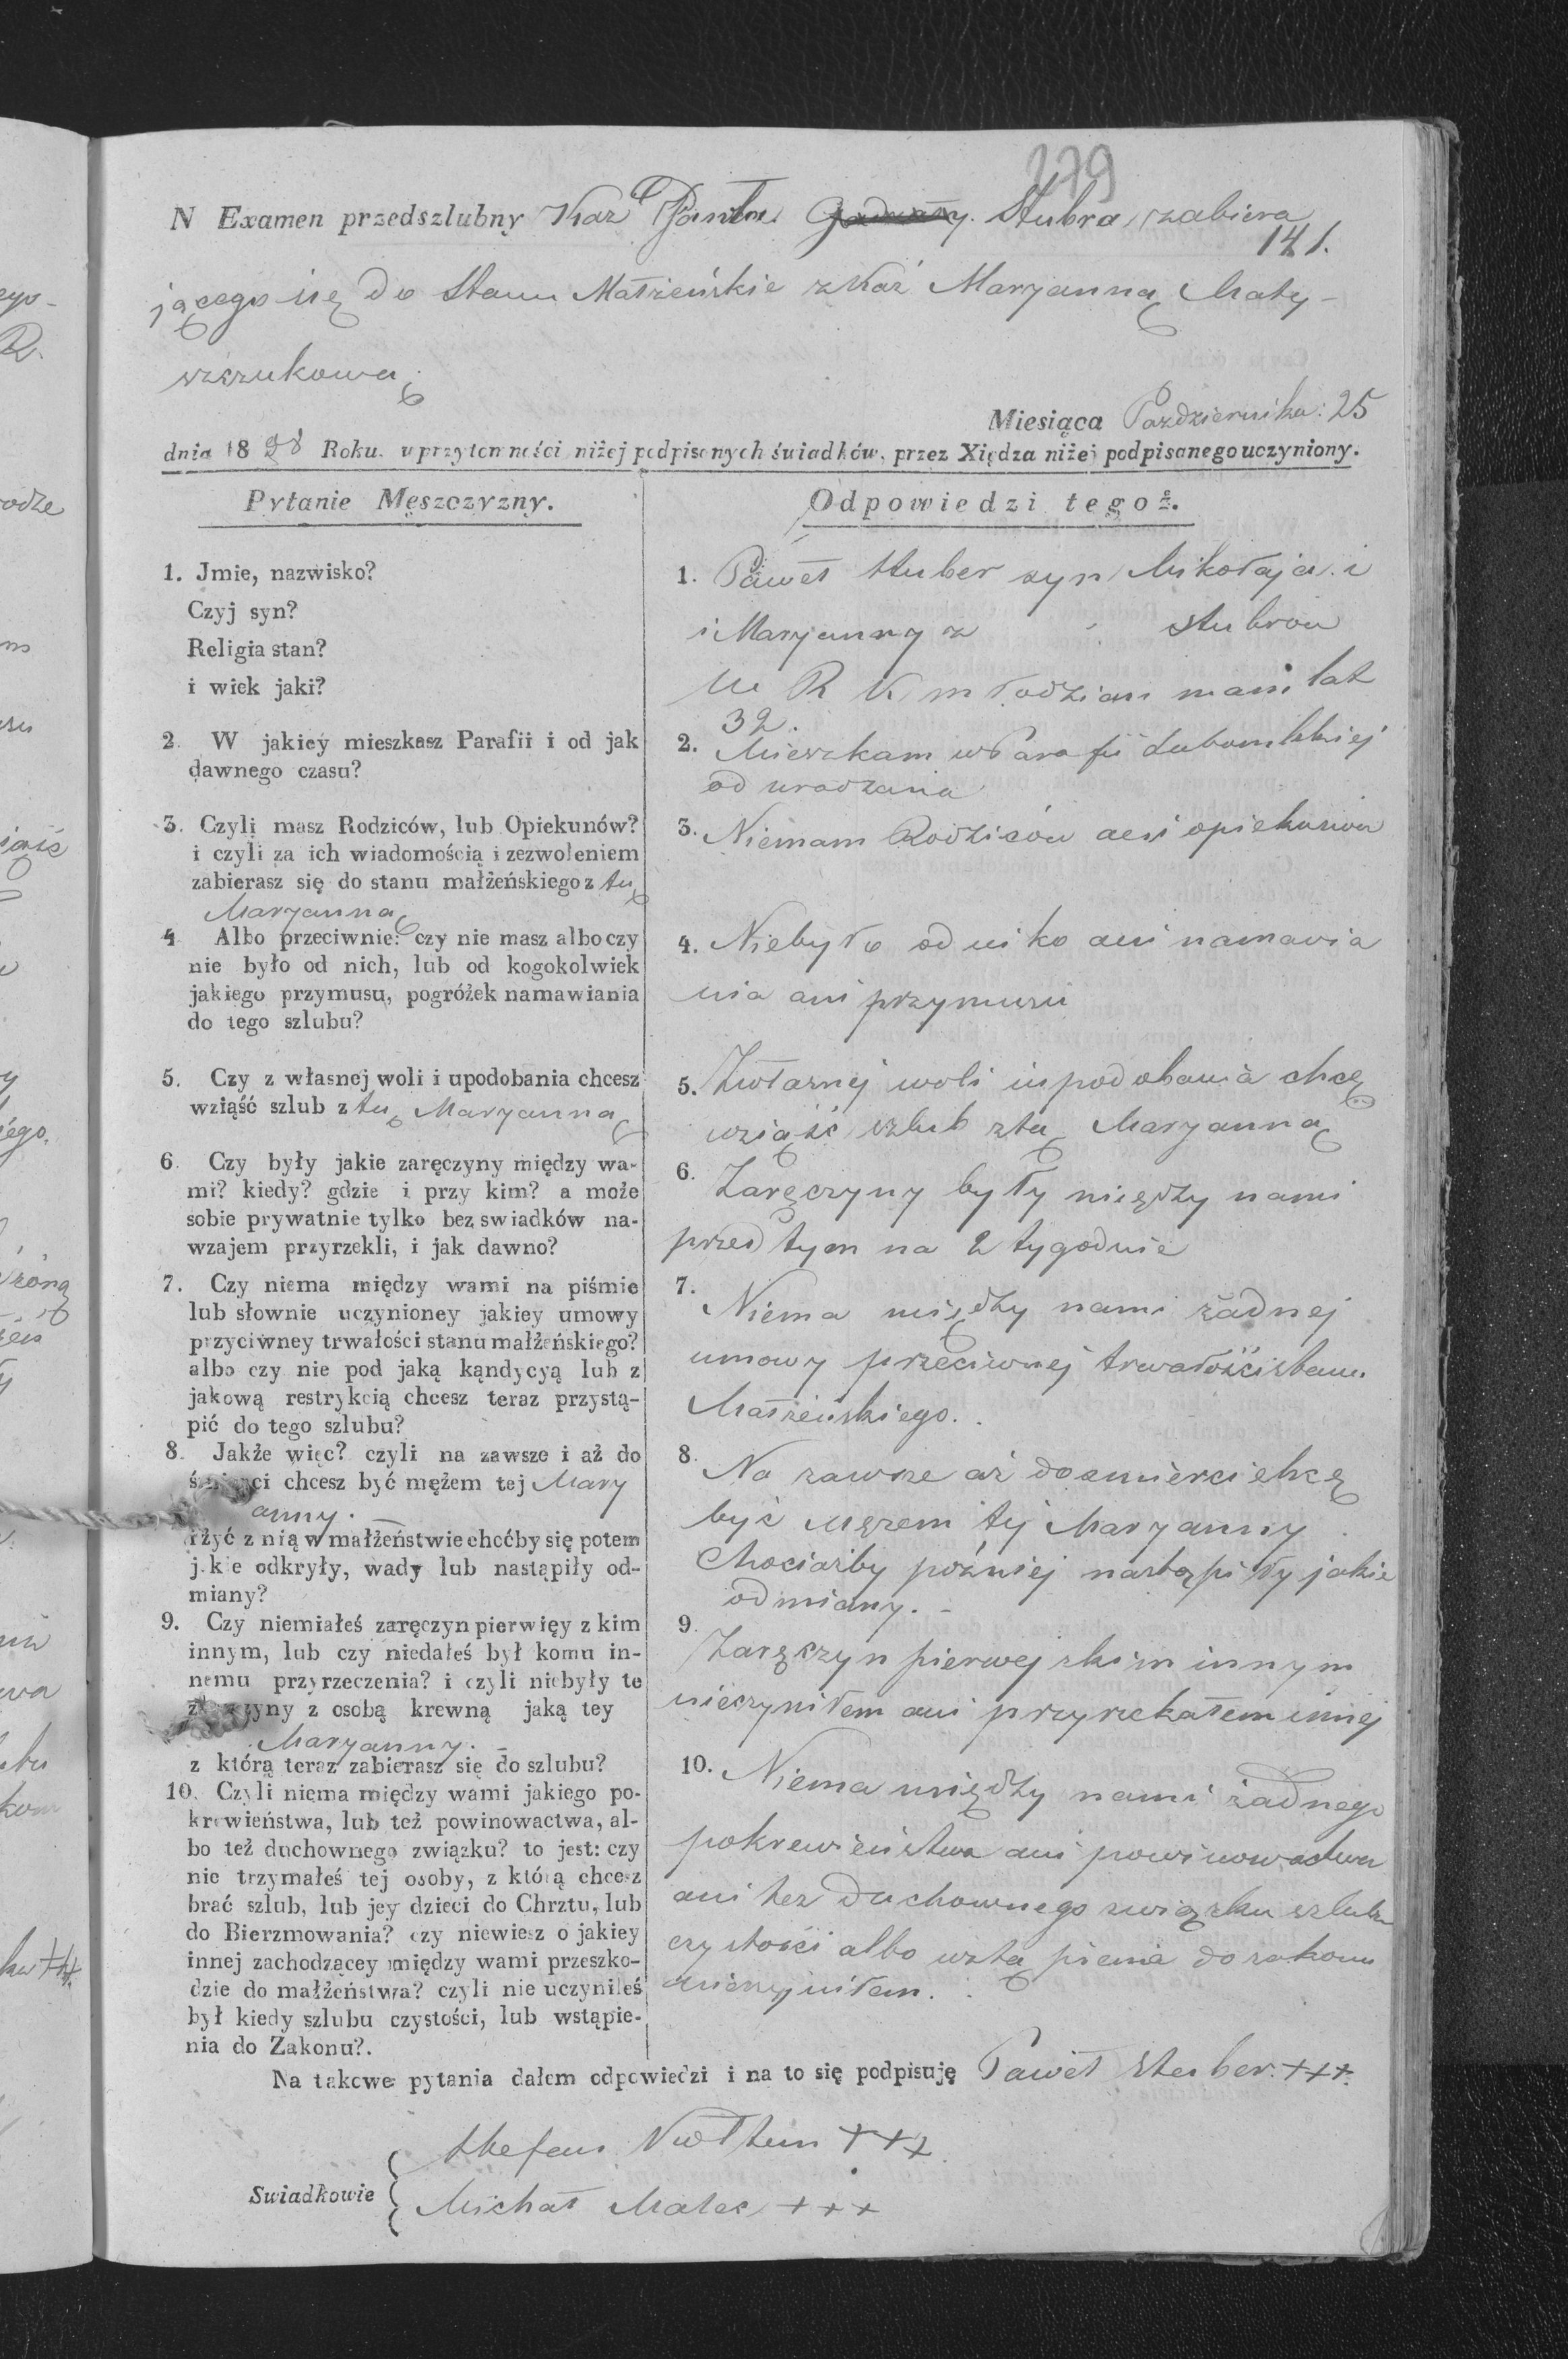 279
N Examen przedszlubny Kaz Pawła Stubra zabiera
141.
jącego się do Stanu Małżeńskie z Kaź Maryanną Maty-
szczukową
Miesiąca Pazdziernika: 25
dnia 1828 Roku. w przytomności niżej podpisanych świadków, przez Xiędza niżej podpisanego uczyniony.
Pytanie Męszczyzny.
1. Jmie, nazwisko?
Czyj syn?
Religia stan?
i wiek jaki?
2. W jakiéy mieszkasz Parafii i od jak
dawnego czasu?
3. Czyli masz Rodziców, lub Opiekunów?
i czyli za ich wiadomością i zezwoleniem
zabierasz się do stanu małżeńskiego z tą
Maryanną
4 Albo przeciwnie: czy nie masz albo czy
nie było od nich, lub od kogokolwiek
jakiego przymusu, pogróżek namawiania
do tego szlubu?
5. Czy z własnej woli i upodobania chcesz
wziąść szlub z tą Maryanną
6. Czy były jakie zaręczyny między wa-
mi? kiedy? gdzie i przy kim? a może
sobie prywatnie tylko bez swiadków na-
wzajem przyrzekli, i jak dawno?
7. Czy niema między wami na piśmie
lub słownie uczynioney jakiey umowy
przyciwney trwałości stanu małżeńskiego?
albo czy nie pod jaką kąndycyą lub z
jakową restrykcią chcesz teraz przystą-
pić do tego szlubu?
8. Jakże więc? czyli na zawsze i aż do
śmierci chcesz być mężem tej Mary
anny.
i żyć z nią w małżeństwie choćby się potem
jakie odkryły, wady lub nastąpiły od-
miany?
9. Czy niemiałeś zaręczyn pierwięy z kim
innym, lub czy niedałeś był komu in-
nemu przyrzeczenia? i czyli niebyły te
zaręczyny z osobą krewną jaką tey
Maryanny.
z którą teraz zabierasz się do szlubu?
10. Czyli niema między wami jakiego po-
krewieństwa, lub też powinowactwa, al-
bo też duchownego związku? to jest: czy
nie trzymałeś tej osoby, z którą chcesz
brać szlub, lub jey dzieci do Chrztu, lub
do Bierzmowania? czy niewiesz o jakiey
innej zachodzącey między wami przeszko-
dzie do małżeństwa? czyli nie uczyniłeś
był kiedy szlubu czystości, lub wstąpie-
nia do Zakonu?.
Odpowiedzi tegoż.
1. Paweł Stuber syn Mikołaja i
i Maryanny z Stubrow
W R K młodzian mam lat
32.
2. Mieszkam w Parafii Lubomlskiej
od urodzania
3. Niemam Rodziców ani opiekunów
4. Niebyło od niko ani namawia
nia ani przymusu
5. Zwłasnej woli i upodobania chcę
wziąść szlub z tą Maryanną
6. Zaręczyny były między nami
przed tym na 2 tygodnie
7. Niema między nami żadnej
umowy przeciwnej trwałości stanu
Małżeńskiego.
8. Na zawsze aż do smierci chcę
być mężem tej Maryanny
Chociażby pózniej nastąpiły jakie
odmiany.
9. Zaręczyn pierwej z kim innym
nieczyniłem ani przyrzekałem innej
10. Niema między nami żadnego
pokrewieństwa ani powinowactwa
ani tez duchownego związku szlubu
czystości albo wstąpienia do zakonu
nieczyniłem.
Na takowe pytania dałem odpowiedzi i na to się podpisuję Paweł Stuber +++.
Swiadkowie
Stefan +++
Michał Malec +++